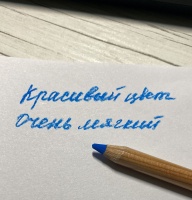 Красивый цвет
Очень мягкий